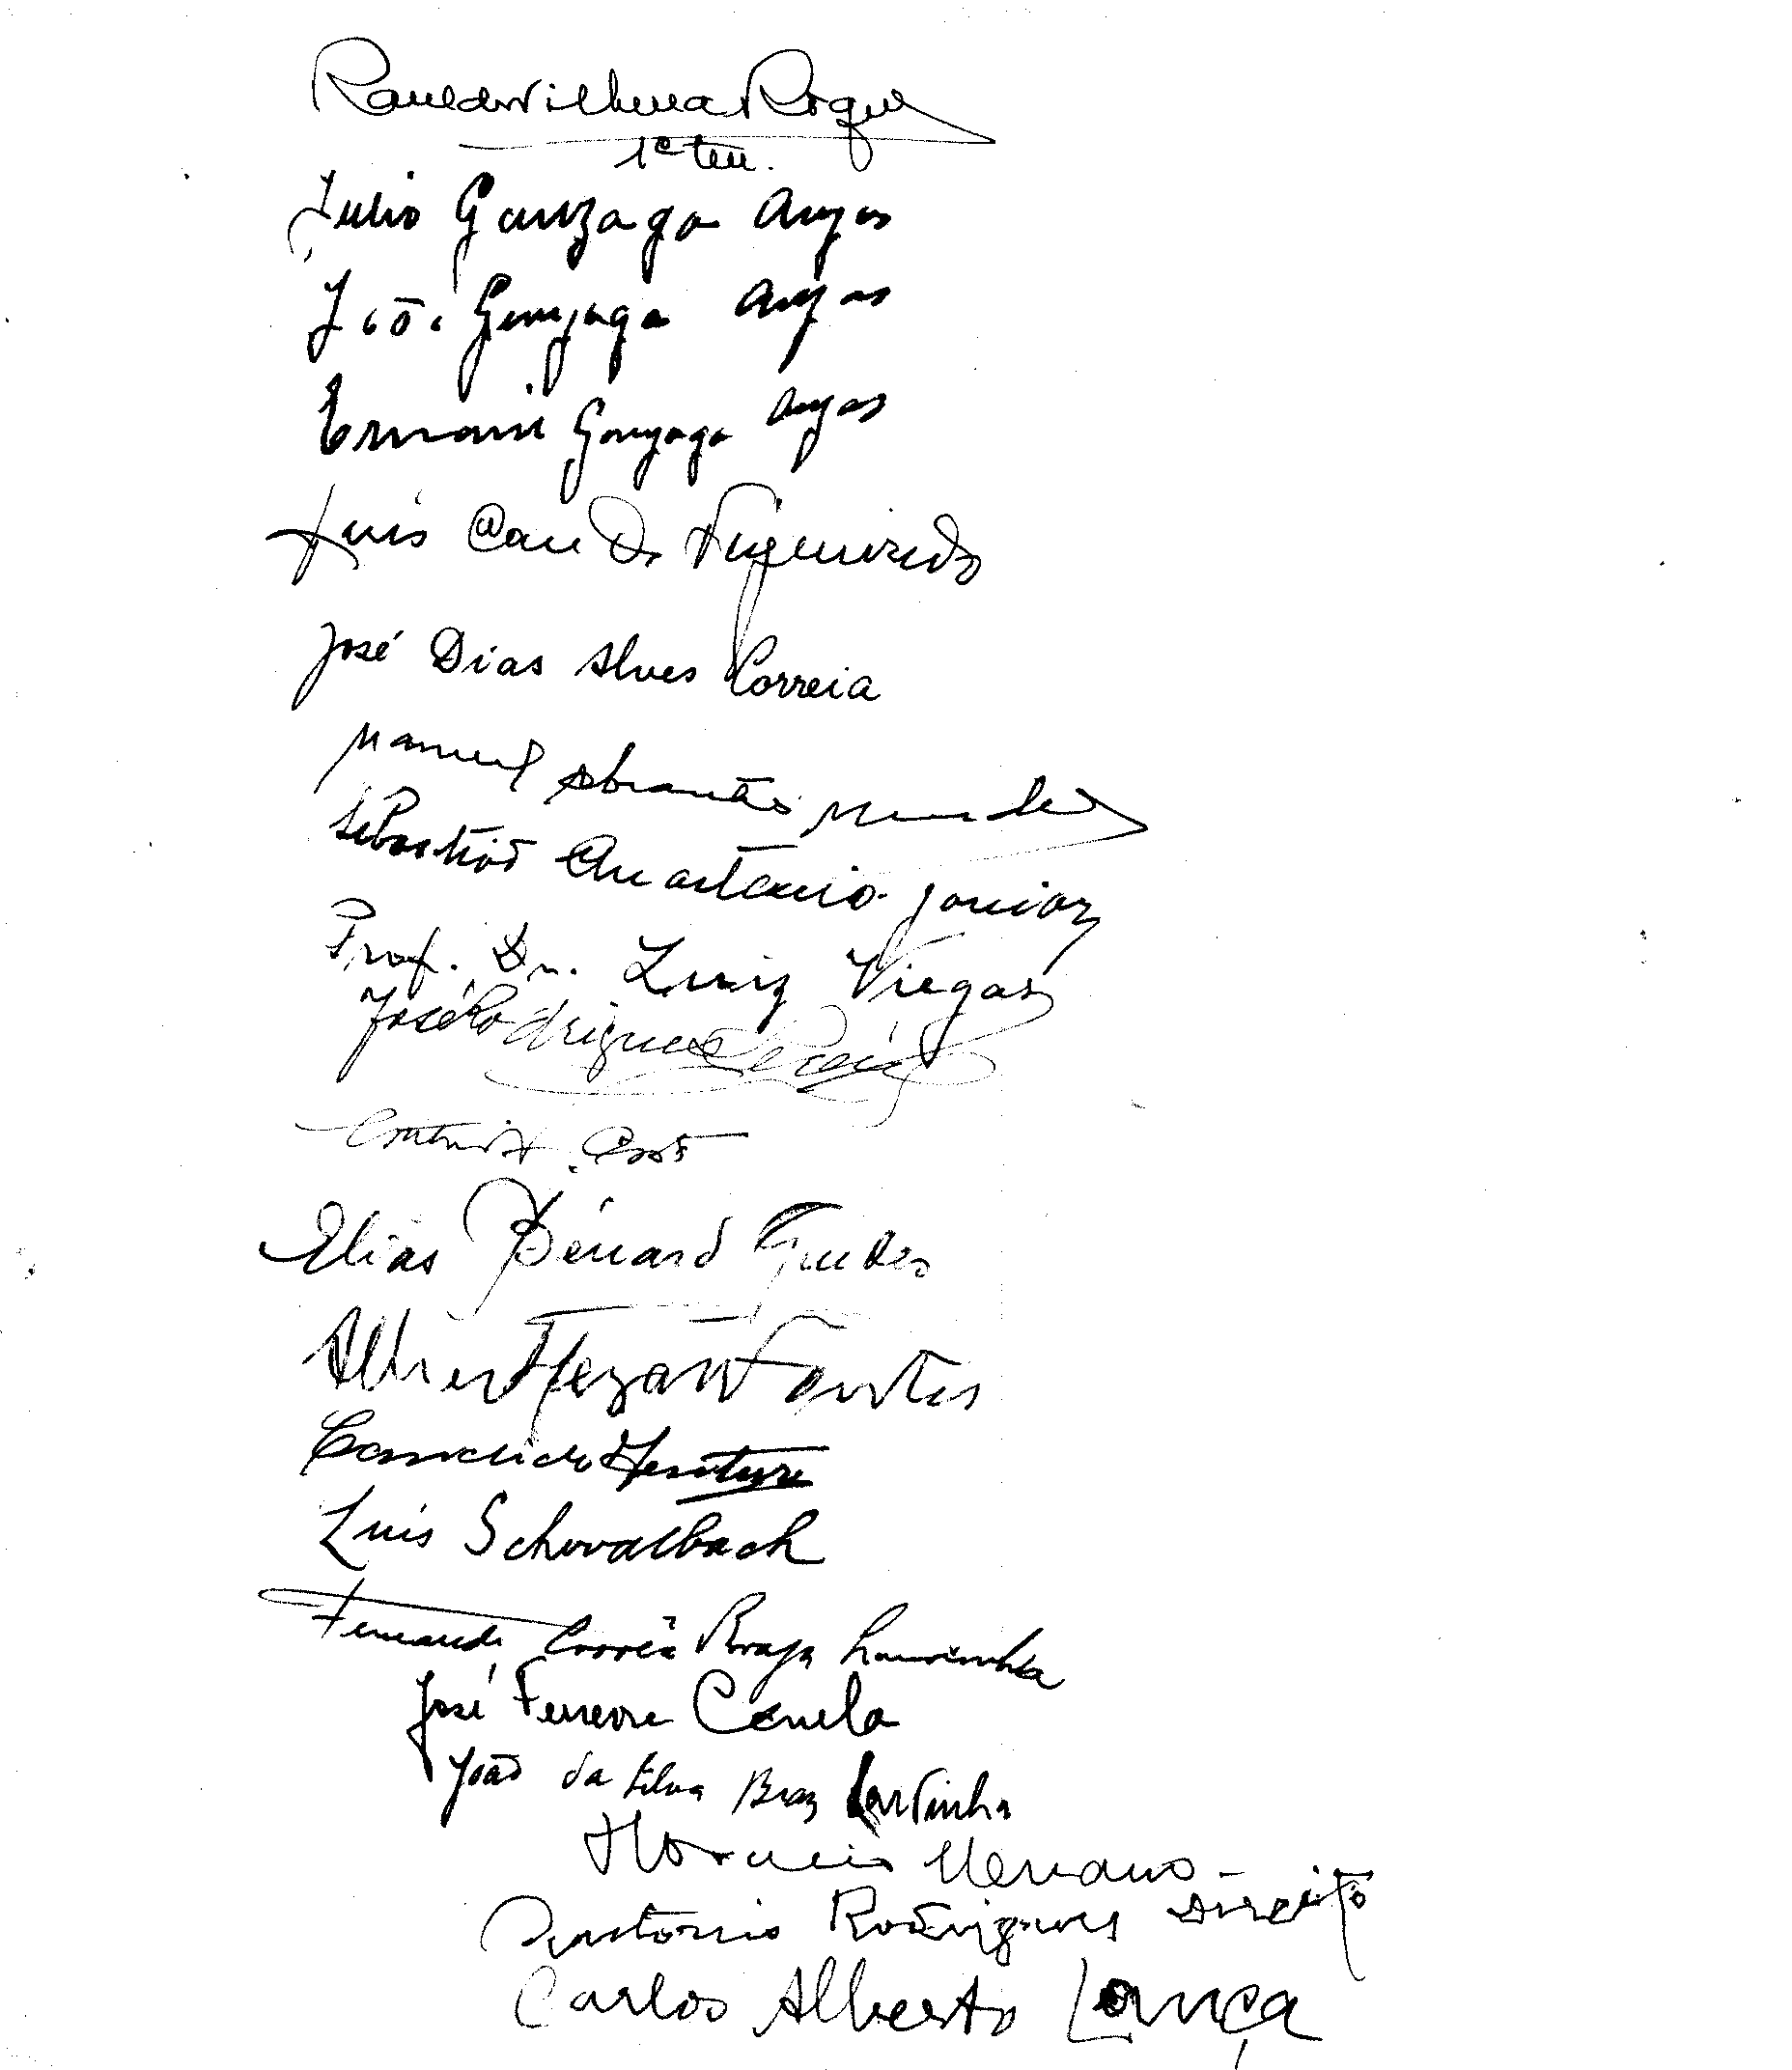 Raul de Vilhena Roque
1º ten.
Julio Gonzaga Anjos
João Gonzaga Anjos
Ernani Gonzaga Anjos
Luis Figueiredo
José Dias Alves Correia
Manuel Abrantes Mendes
Sebastião Anastacio Junior
Prof. Dr. Luiz Viegas
José Rodrigues
Elias Bénard Guedes
Fontes
Candido Ventura
Luis Schwalbach
Fernando Corrêa Braga Lourinha
José Ferreira Canela
João da Silva Braz
Horacio
Antonio Rodrigues Direito
Carlos Alberto Lança